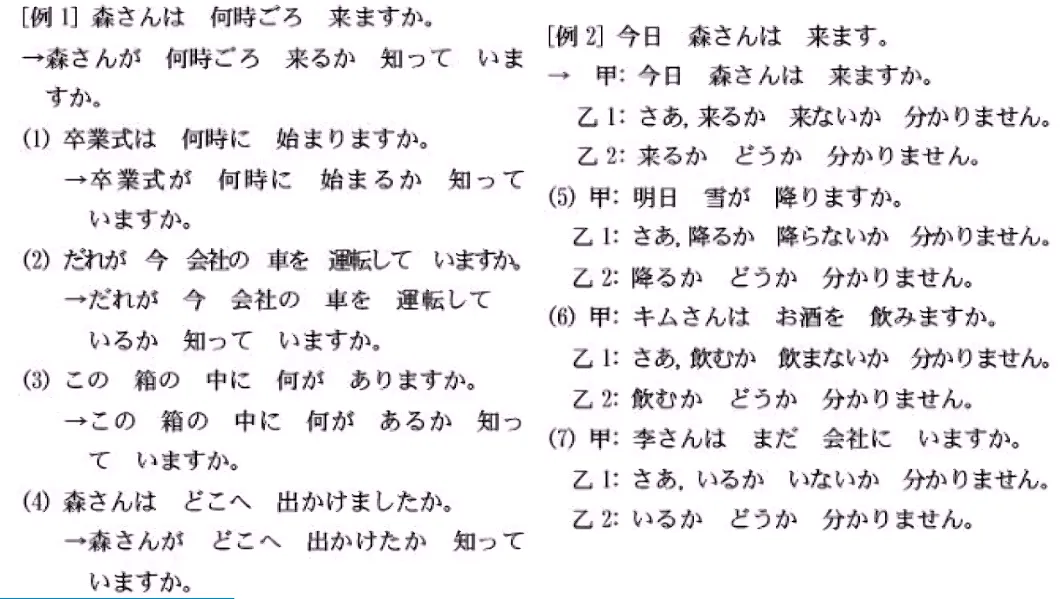 [例1] 森さんは　何時ごろ　来ますか。
→森さんが　何時ごろ　来るか　知って　いま
すか。
(1) 卒業式は　何時に　始まりますか。
→卒業式が　何時に　始まるか　知って
いますか。
(2) だれが　今　会社の　車を　運転して　いますか。
→だれが　今　会社の　車を　運転して
いるか　知って　いますか。
(3) この　箱の　中に　何が　ありますか。
→この　箱の　中に　何が　あるか　知っ
て　いますか。
(4) 森さんは　どこへ　出かけましたか。
→森さんが　どこへ　出かけたか　知って
いますか。
[例2] 今日　森さんは　来ます。
→　甲: 今日　森さんは　来ますか。
乙1: さあ, 来るか　来ないか　分かりません。
乙2: 来るか　どうか　分かりません。
(5) 甲: 明日　雪が　降りますか。
乙1: さあ, 降るか　降らないか　分かりません。
乙2: 降るか　どうか　分かりません。
(6) 甲: キムさんは　お酒を　飲みますか。
乙1: さあ, 飲むか　飲まないか　分かりません。
乙2: 飲むか　どうか　分かりません。
(7) 甲: 李さんは　まだ　会社に　いますか。
乙1: さあ, いるか　いないか　分かりません。
乙2: いるか　どうか　分かりません。